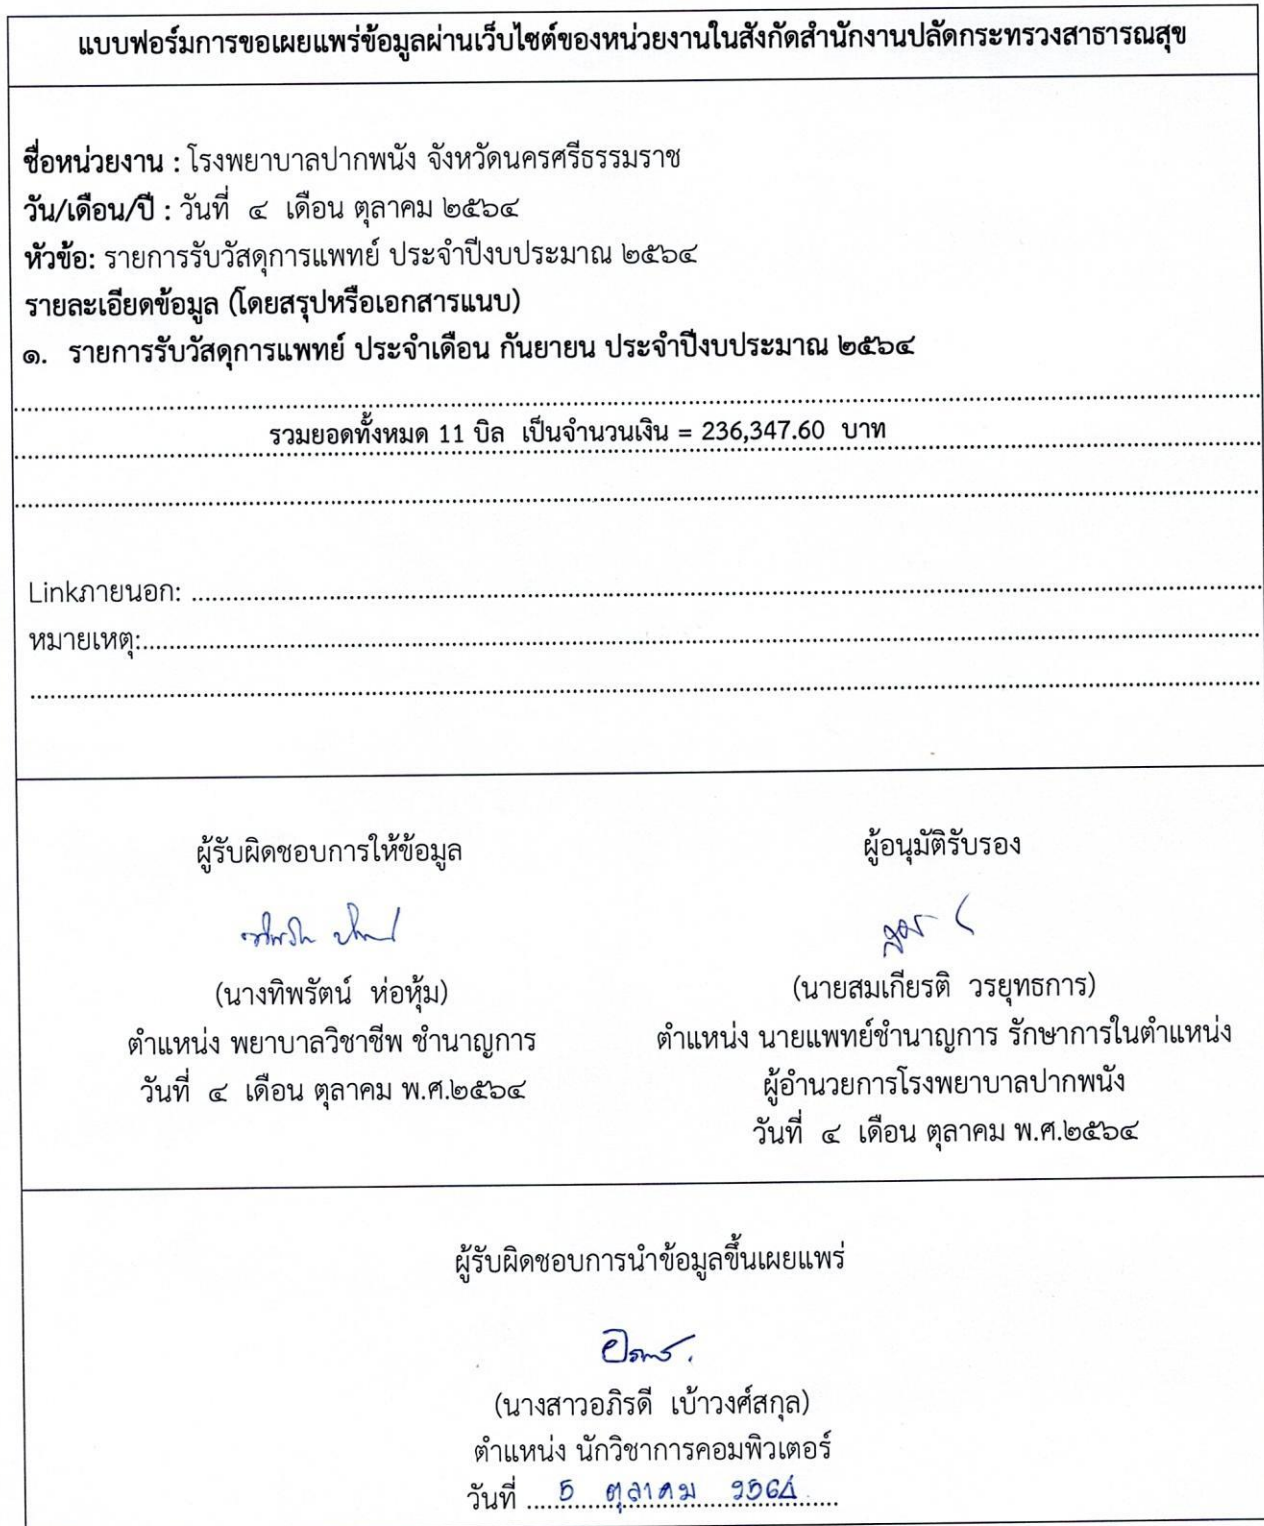 แบบฟอร์มการขอเผยแพร่ข้อมูลผ่านเว็บไซต์ของหน่วยงานในสังกัดสำนักงานปลัดกระทรวงสาธารณสุข
ชื่อหน่วยงาน : โรงพยาบาลปากพนัง จังหวัดนครศรีธรรมราช
วัน/เดือน/ปี : วันที่ ๔ เดือน ตุลาคม ๒๕๖๔
หัวข้อ: รายการรับวัสดุการแพทย์ ประจำปีงบประมาณ ๒๕๖๔
รายละเอียดข้อมูล (โดยสรุปหรือเอกสารแนบ)
๑. รายการรับวัสดุการแพทย์ ประจำเดือน กันยายน ประจำปีงบประมาณ ๒๕๖๔
รวมยอดทั้งหมด 11 บิล เป็นจำนวนเงิน = 236,347.60 บาท
Linkภายนอก:
หมายเหตุ:
ผู้รับผิดชอบการให้ข้อมูล
(นางทิพรัตน์ ห่อหุ้ม)
ตำแหน่ง พยาบาลวิชาชีพ ชำนาญการ
วันที่ ๔ เดือน ตุลาคม พ.ศ.๒๕๖๔
ผู้อนุมัติรับรอง
(นายสมเกียรติ วรยุทธการ)
ตำแหน่ง นายแพทย์ชำนาญการ รักษาการในตำแหน่ง
ผู้อำนวยการโรงพยาบาลปากพนัง
วันที่ ๔ เดือน ตุลาคม พ.ศ.๒๕๖๔
ผู้รับผิดชอบการนำข้อมูลขึ้นเผยแพร่
(นางสาวอภิรดี เบ้าวงศ์สกุล)
ตำแหน่ง นักวิชาการคอมพิวเตอร์
วันที่ 5 ตุลาคม 2564